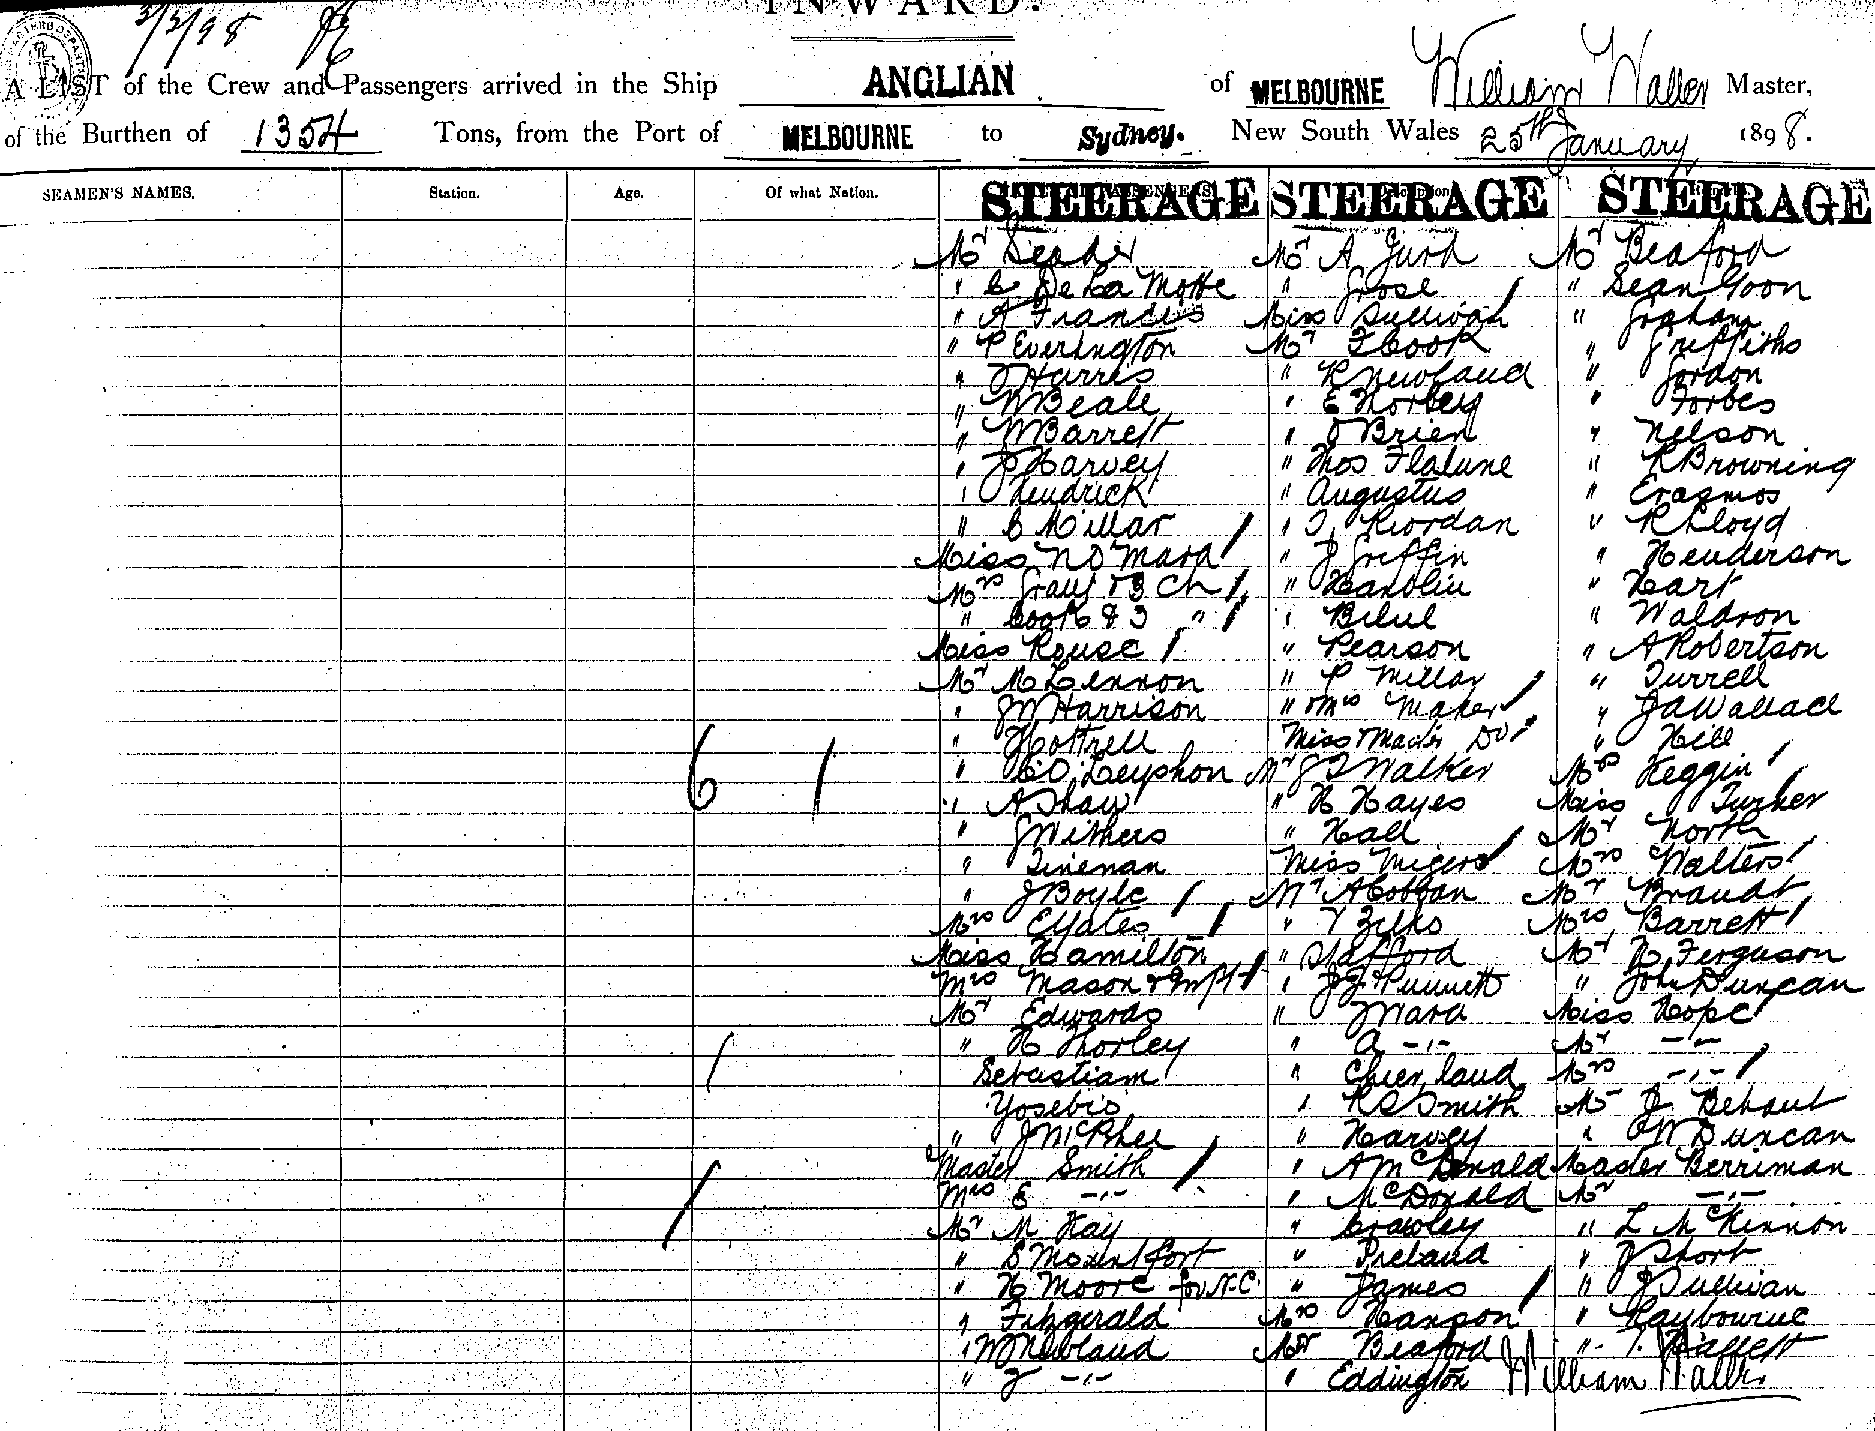 INWARD.
3/3/98
A LIST of the Crew and Passengers arrived in the Ship ANGLIAN of MELBOURNE William Waller Master,
of the Burthen of 1354 Tons, from the Port of MELBOURNE to Sydney. New South Wales 25th January 1898.
SEAMEN'S NAMES. Station. Age. Of what Nation. STEERAGE STEERAGE STEERAGE
Mr Seader
" C De La Motte
" A Francis
" P Everington
" J Harris
" W Beale
" W Barrett
" J Harvey
" Kendrick
" C Millar
Miss N O'Mara
Mrs Gray & 3 Ch
" Cook & 3 "
Miss Rouse
Mr McLennon
" J W Harrison
" J Cottrell
" A Shaw
" J Withers
" J Boyle
Mrs E Yates
Miss Hamilton
Mrs Mason & Inft
Mr Edwards
" H Thorley
Sebastian
Yosebio
" J McPhee
Master Smith
Mrs E -"-
Mr M Kay
" S Mountfort
" H Moore for N.C.
" Fitzgerald
" W Newland
" J -"-
Mr A Jurh
" Grose
Miss Sullivan
Mr F Cook
" R Newland
" E Horley
" O'Brien
" Thos
" Augustus
" J. Riordan
" J Griffin
" Pearson
" P Millar
" & Mrs Maher
Miss & Master Do
Mr J T Walker
" H Hayes
" Hall
Miss
Mr A Cobban
" Stafford
" Mara
" A -"-
" R S Smith
" Harvey
" A McDonald
" McDonald
" Crawley
" Ireland
" James
Mrs Hanson
Mr Beaford
" Eddington
Mr Beaford
" Sean Goon
" Graham
" Griffiths
" Gordon
" Forbes
" Nelson
" R Browning
" Erasmos
" R Lloyd
" Henderson
" Hart
" Waldron
" A Robertson
" Turrell
" J A Wallace
" Hill
Mrs Heggin
Miss Turner
Mr North
Mrs Walters
Mr Brandt
Mrs Barrett
Mr H Ferguson
" John Duncan
Miss Hope
Mr -"-
Mrs -"-
Mr J Behaut
" W Duncan
Master Berriman
Mr -"-
" L McKinnon
" J Short
" J Sullivan
" Claybourne
" T. Hallett
William Waller
6 1